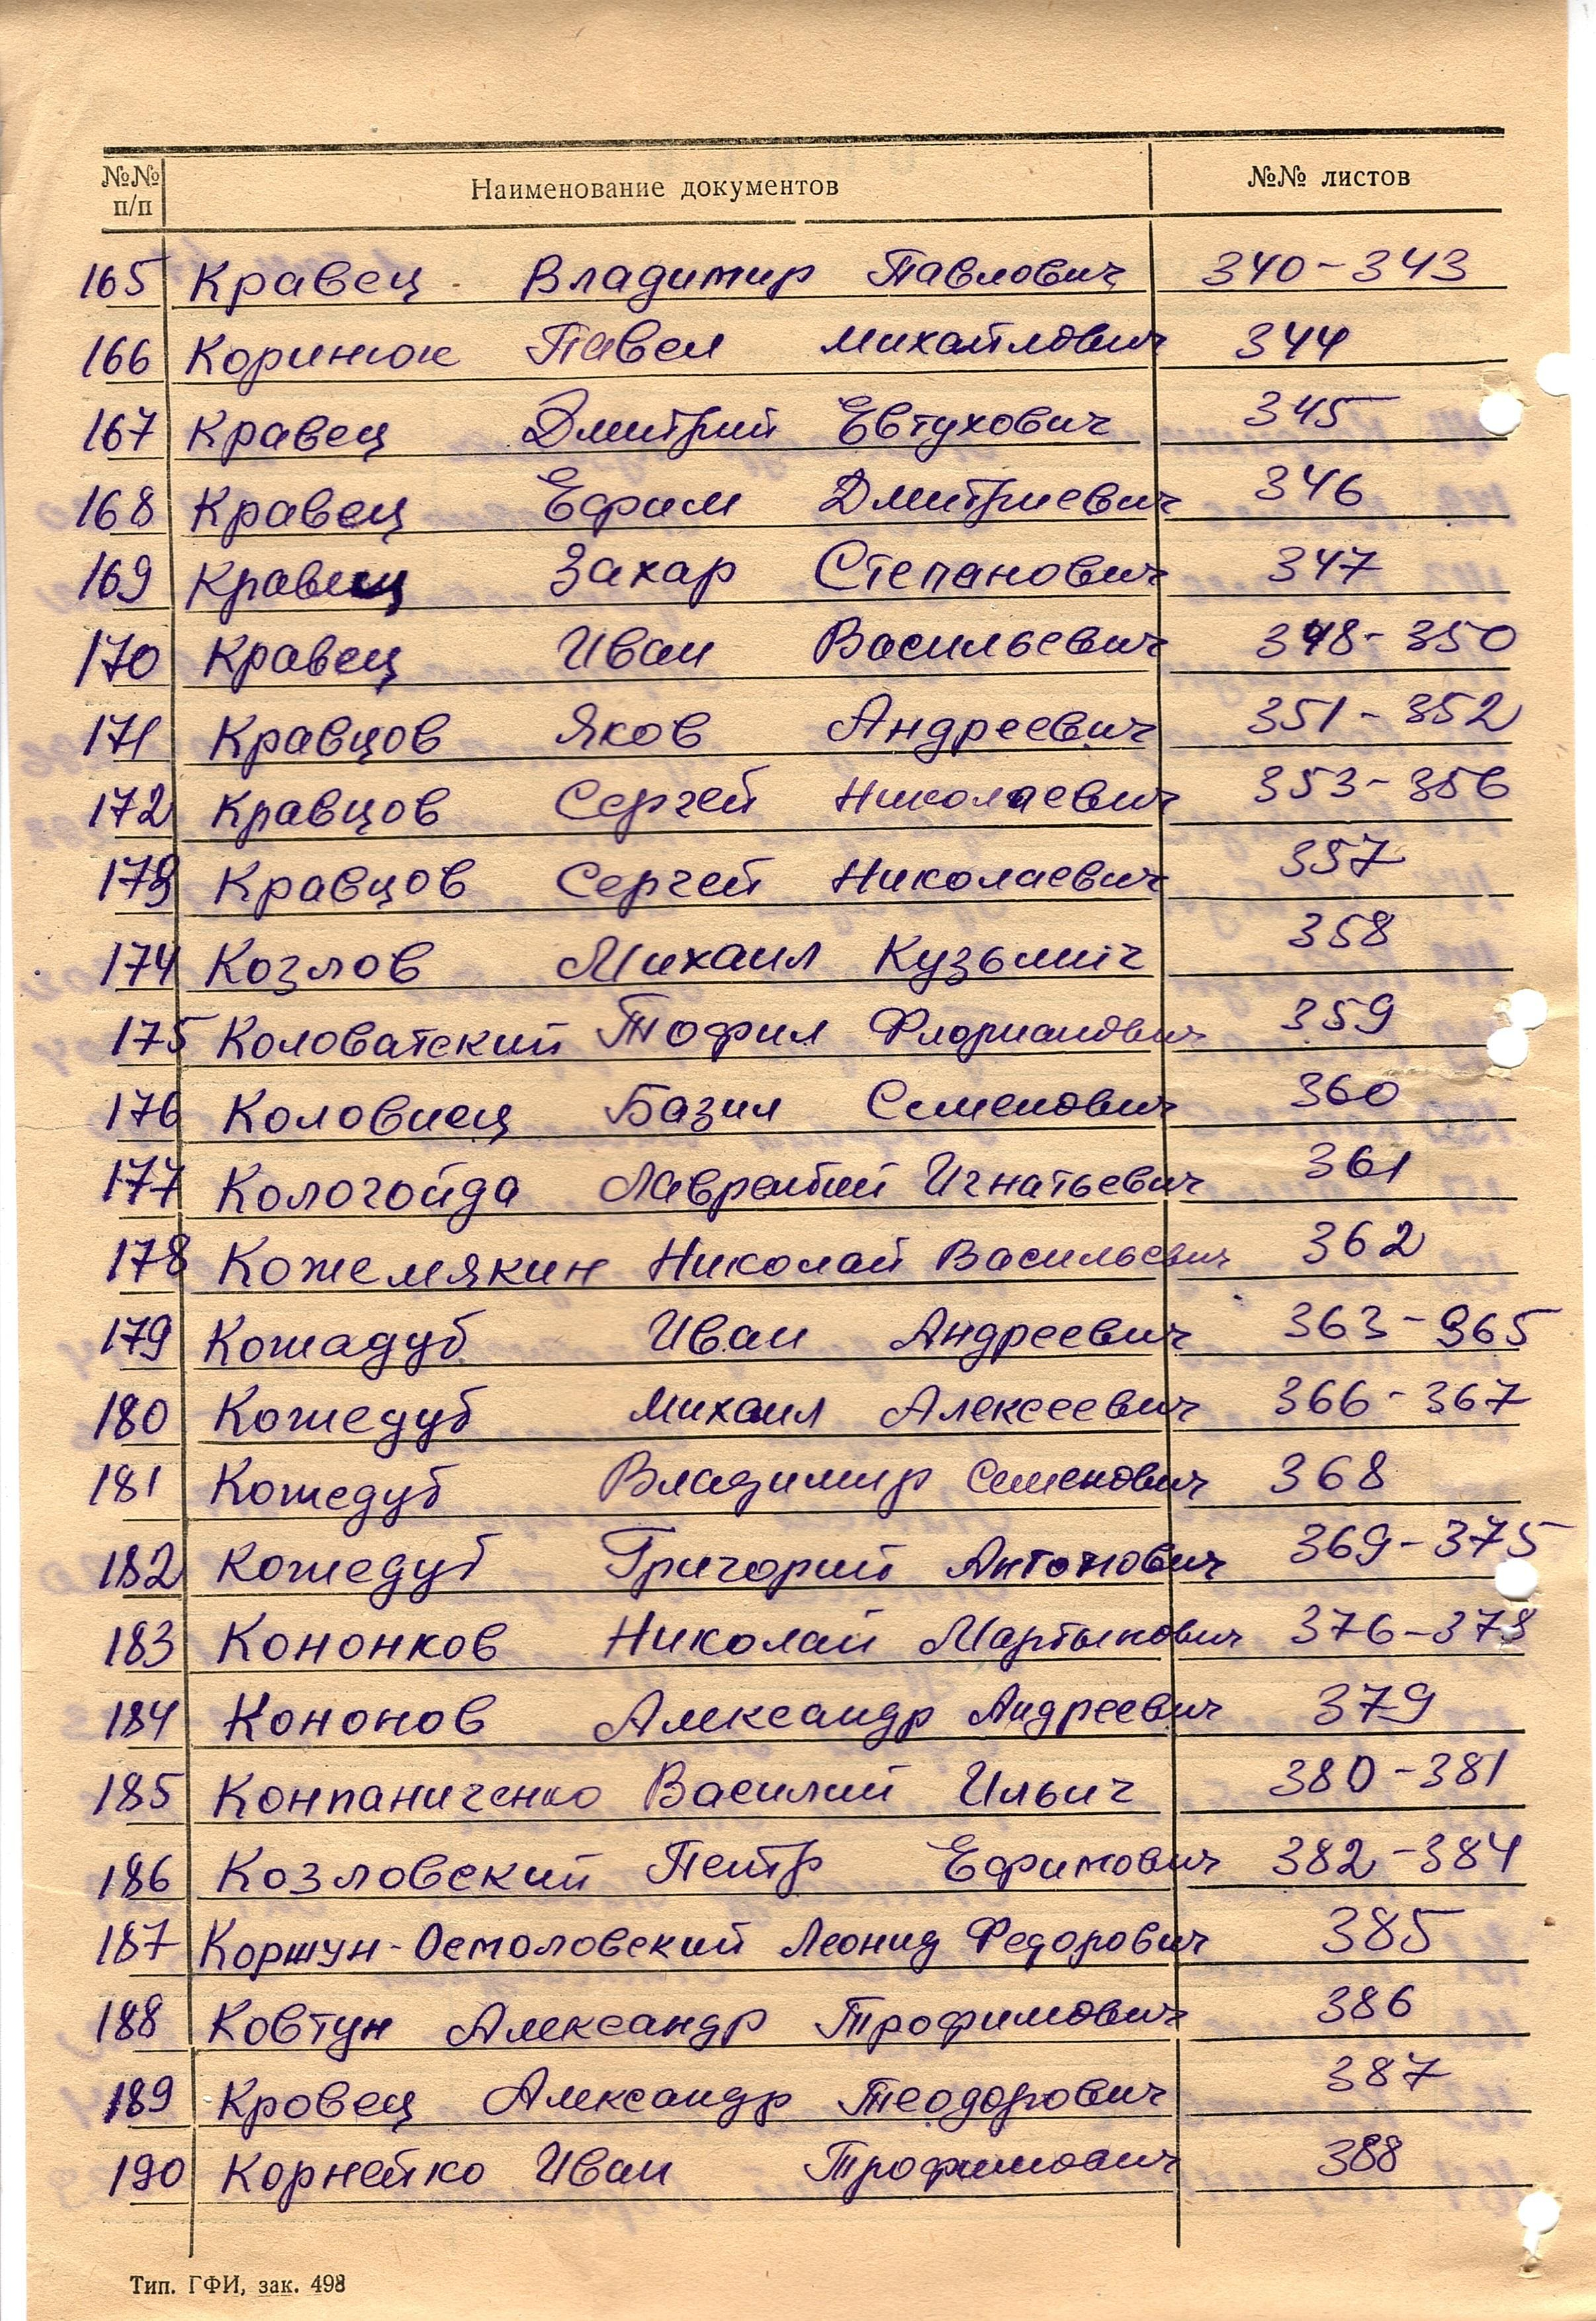 №№ п/п Наименование документов №№ листов
165 Кравец Владимир Павлович 340-343
166 Коринюк Павел Михайлович 344
167 Кравец Дмитрий Евтухович 345
168 Кравец Ефим Дмитриевич 346
169 Кравец Захар Степанович 347
170 Кравец Иван Васильевич 348-350
171 Кравцов Яков Андреевич 351-352
172 Кравцов Сергей Николаевич 353-356
173 Кравцов Сергей Николаевич 357
174 Козлов Михаил Кузьмич 358
175 Коловатский Тофил Флорианович 359
176 Коловиец Базил Семенович 360
177 Кологойда Лаврентий Игнатьевич 361
178 Кожемякин Николай Васильевич 362
179 Кожадуб Иван Андреевич 363-365
180 Кожедуб Михаил Алексеевич 366-367
181 Кожедуб Владимир Семенович 368
182 Кожедуб Григорий Антонович 369-375
183 Кононков Николай Мартынович 376-378
184 Кононов Александр Андреевич 379
185 Конпаниченко Василий Ильич 380-381
186 Козловский Петр Ефимович 382-384
187 Коршун-Осмоловский Леонид Федорович 385
188 Ковтун Александр Трофимович 386
189 Кровец Александр Теодорович 387
190 Корнейко Иван Трофимович 388
Тип. ГФИ, зак. 498